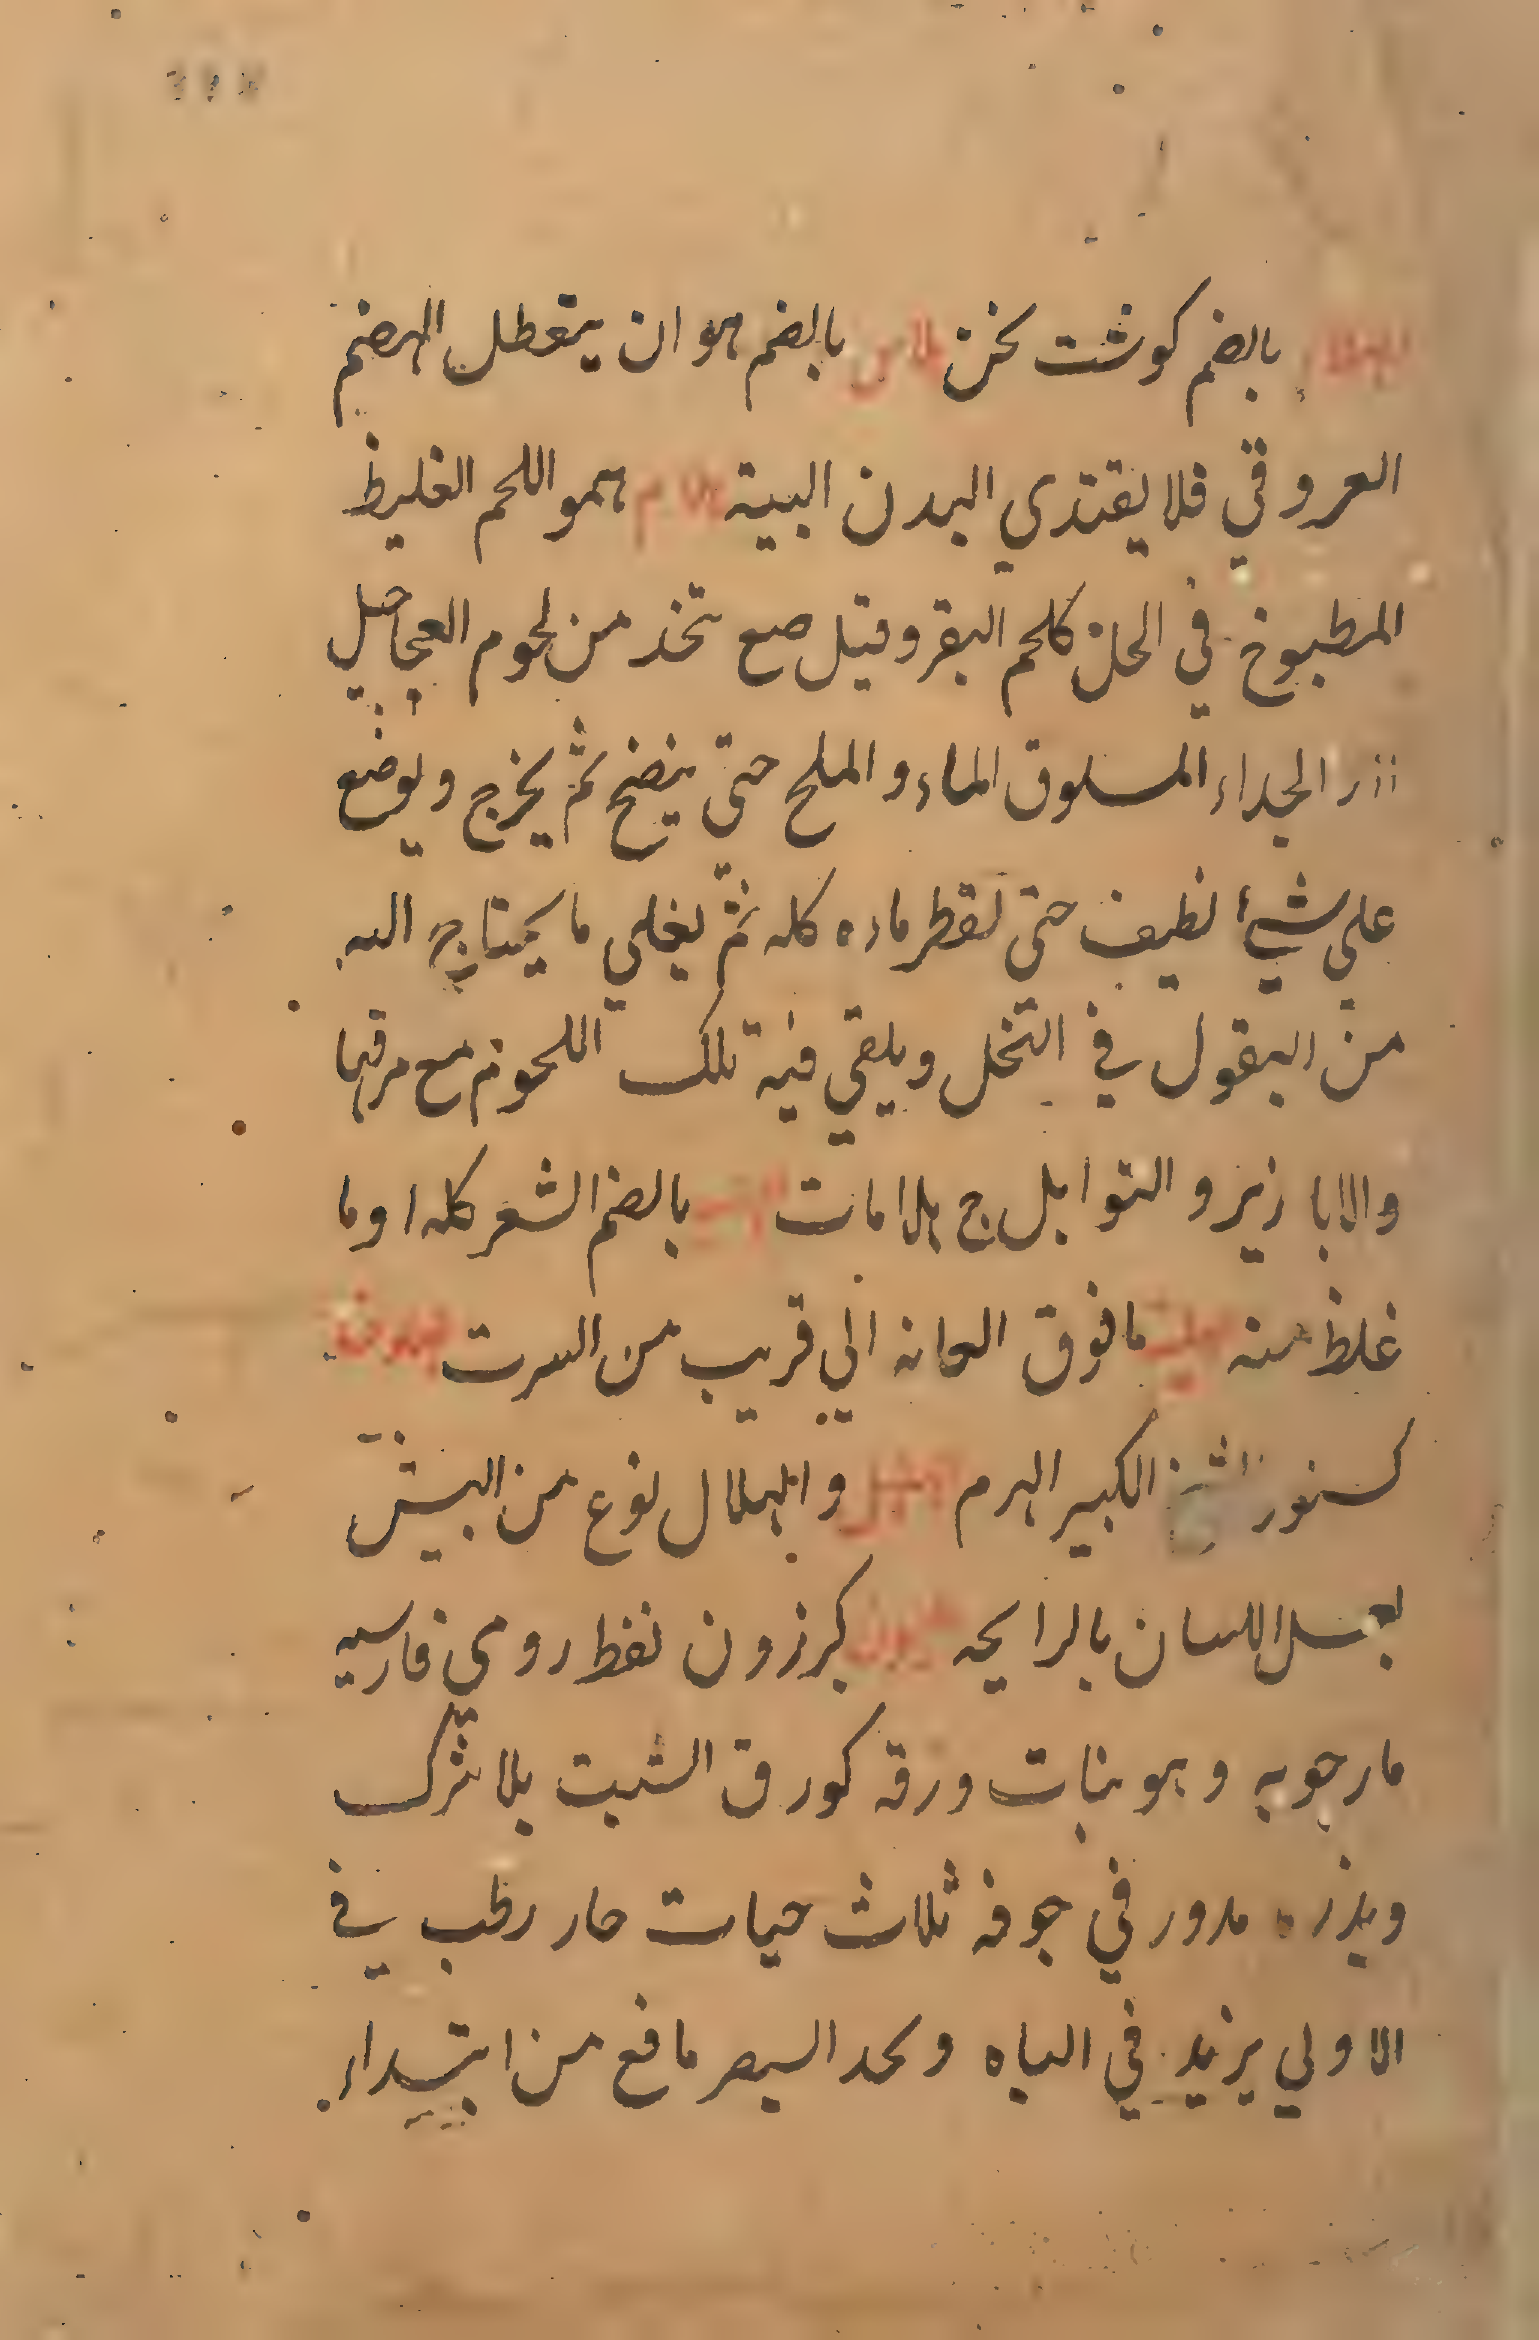 بالضم كوشت لخن بالضم هو ان يتعطل الهضم
العروقي فلا يقتدي البدن البية هلام هو اللحم الغليظ
المطبوخ في الخل كلحم البقر و قيل صع تخذ من لحوم العجاجيل
الجداء المسلوق الماء و الملح حتى ينضج ثم يخرج و يوضع
على شيئ نطيف حتى تقطر ماءه كله ثم يغلي ما يحتاج اليه
من البقول في التخل و يلقي فيه تلك اللحوم مع مرقها
والابازير و التوابل ج هلامات بالضم الشعر كله او ما
غلظ منه ما فوق العانه الي قريب من السرت
كسنور الشيخ الكبير الهرم و الهلال نوع من البيش
اللسان بالرايحه كرزون لفظ رومي فارسيه
مارجوبه و هو نبات ورقه كورق الشبت بلا شرك
وبذره مدور في جوفه ثلاث حيات حار رطب في
الاولي يزيد في الباه و يحد البصر مافع من ابتداء